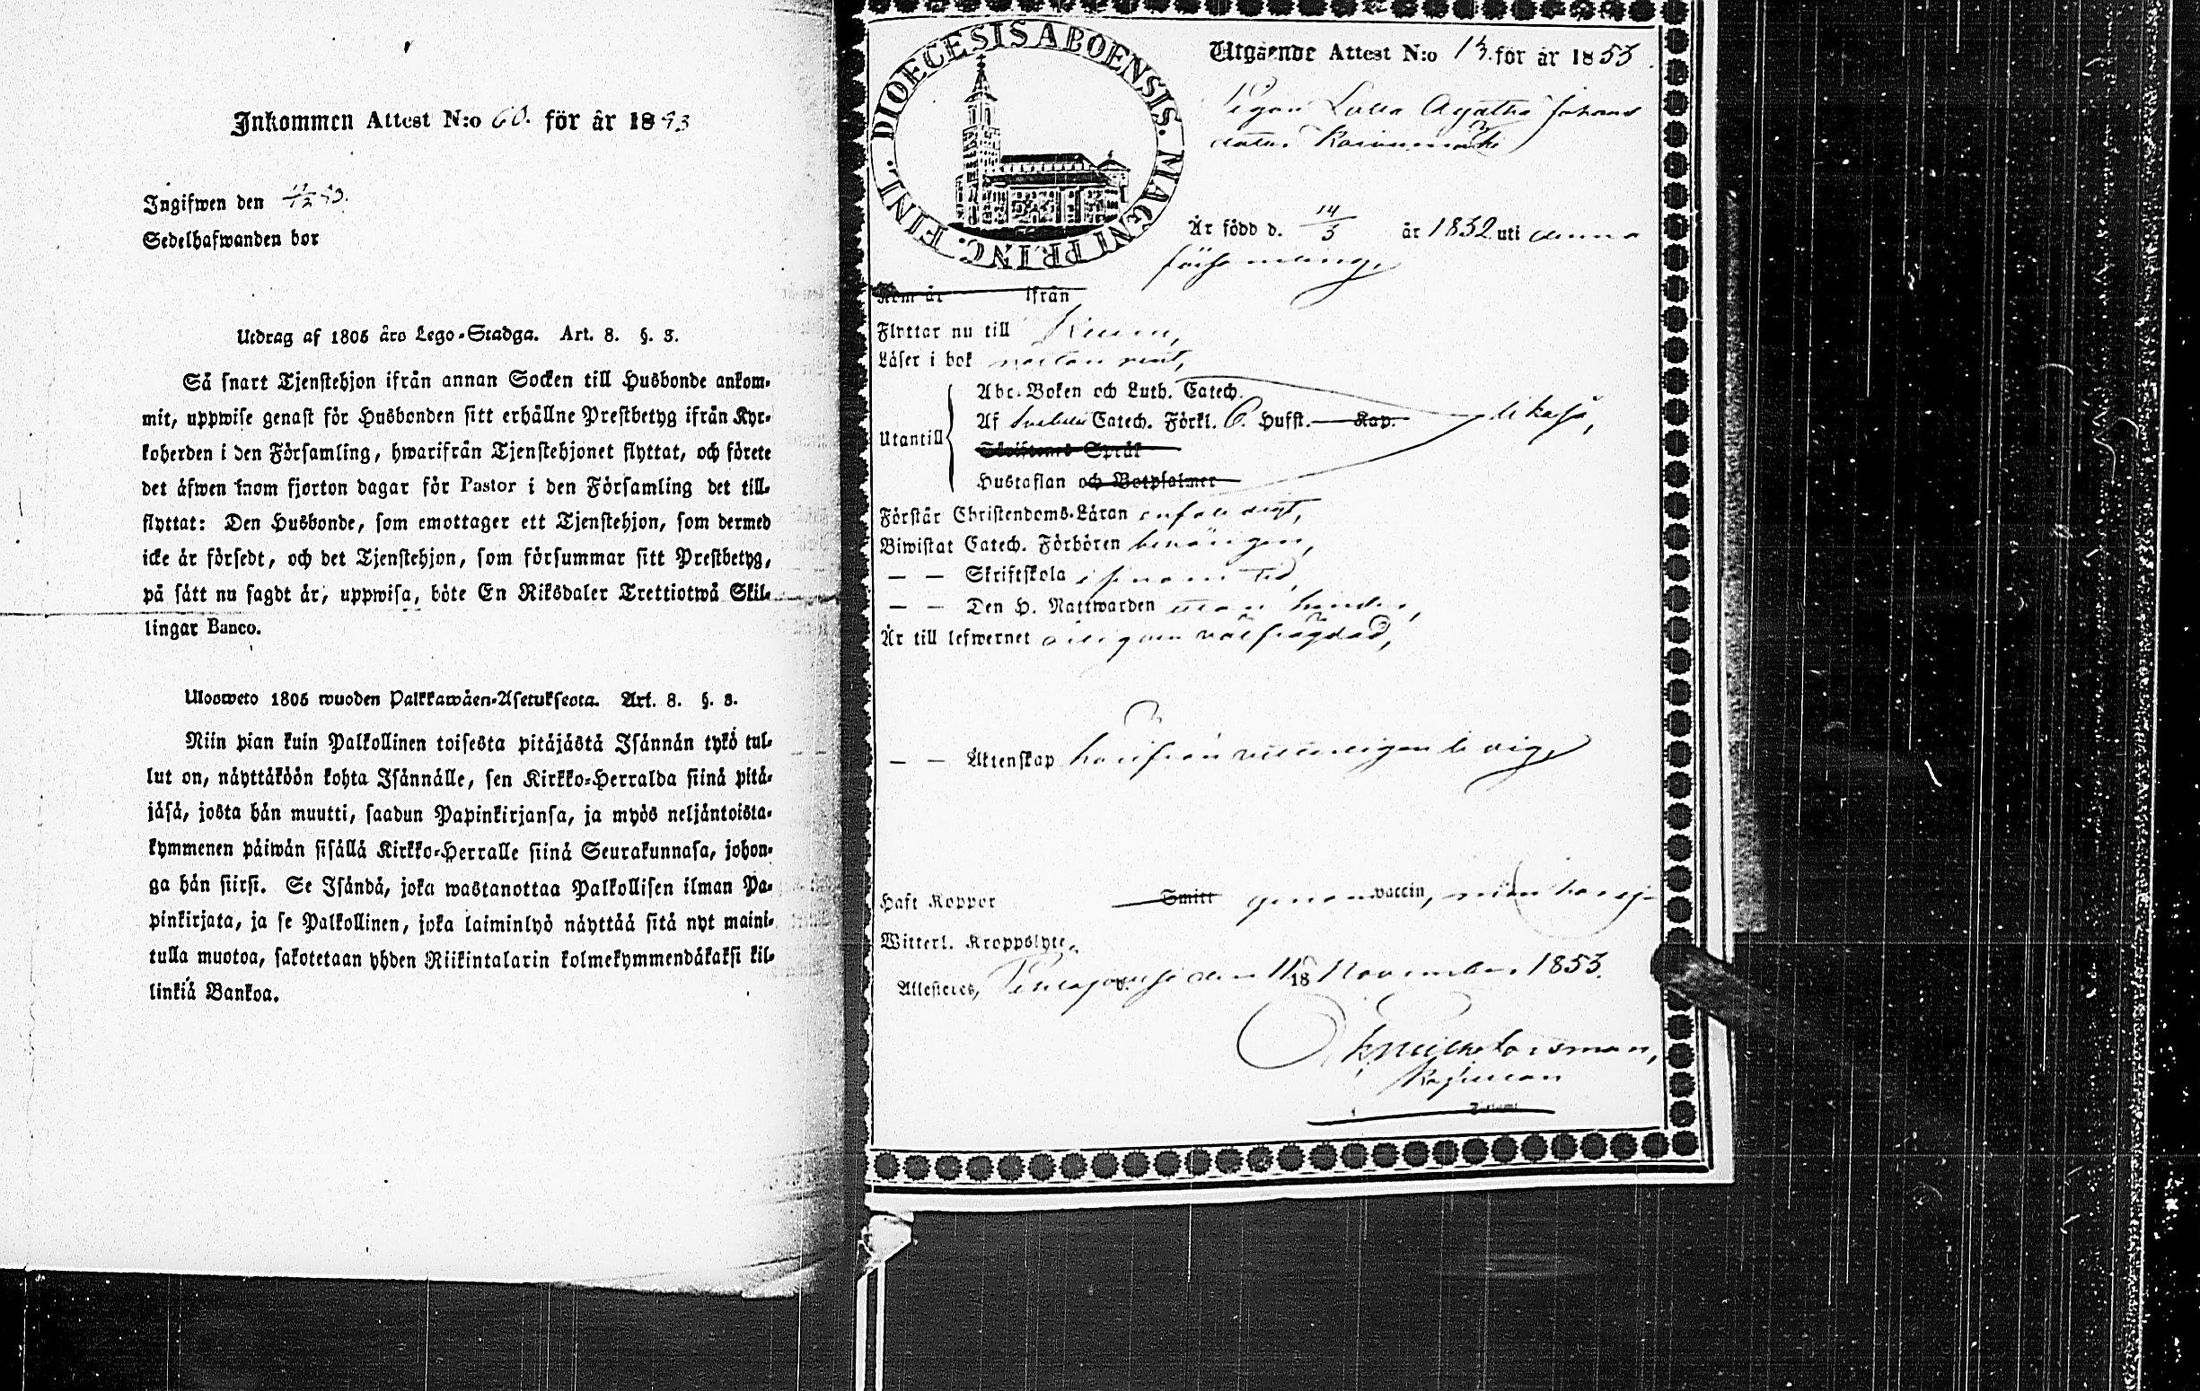 Inkommen Attest N:o 60. för år 1853
Ingifwen den 11/12 53.
Sedelhafwanden bor
Utdrag af 1805 års Lego-Stadga. Art. 8. §. 3.
Så snart Tjenstehjon ifrån annan Socken till Husbonde ankom-
mit, uppwise genast för Husbonden sitt erhållne Prestbetyg ifrån Kyr-
koherden i den Församling, hwarifrån Tjenstehjonet flyttat, och förete
det äfwen inom fjorton dagar för Pastor i den Församling det till-
flyttat: Den Husbonde, som emottager ett Tjenstehjon, som dermed
icke är försedt, och det Tjenstehjon, som försummar sitt Prestbetyg,
på sätt nu sagdt är, uppwisa, böte En Riksdaler Trettiotwå Skil-
lingar Banco.
Ulosweto 1805 wuoden Palkkawäen-Asetuksesta. Art. 8. §. 3.
Niin pian kuin Palkollinen toisesta pitäjästä Isännän tykö tul-
lut on, näyttäköön kohta Isännälle, sen Kirkko-Herralda siinä pitä-
jäsä, josta hän muutti, saadun Papinkirjansa, ja myös neljäntoista-
kymmenen päiwän sisällä Kirkko-Herralle siinä Seurakunnasa, johon-
ga hän siirsi. Se Isändä, joka wastanottaa Palkollisen ilman Pa-
pinkirjata, ja se Palkollinen, joka laiminlyö näyttää sitä nyt maini-
tulla muotoa, sakotetaan yhden Riikintalarin kolmekymmendäkaksi kil-
linkiä Bankoa.
DIOECESIS ABOENSIS. MAGNI PRINC. FINL.
Utgående Attest N:o 13. för år 1853.
Pigan Lovisa Agatha Johans
dotter
Är född d. 14/3 år 1832 uti denna
församling,
Kom år ifrån
Flyttar nu till Kiumo,
Läser i bok nästan rent,
Abc-Boken och Luth. Catech.
Af Svebelii Catech. Förkl. 6. Hufst. Kap.
likaså,
Utantill
Skriftenes Språk
Hustaflan och Botpsalmer
Förstår Christendoms-Läran enfaldigt,
Biwistat Catech. Förhören benägen,
— — Skriftskola i sinom tid,
— — Den H. Nattwarden utan hinder,
Är till lefwernet oklanderlig, välfrägdad,
— — Äktenskap härifrån vitterligen ledig,
Haft Koppor Smitt genom vaccin,
Witterl. Kroppslyte
Attesteras, den 18 November 1853.
Forsman,